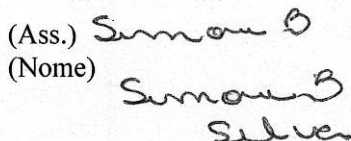 (Ass.) Simone B
(Nome)
Simone B
Silva